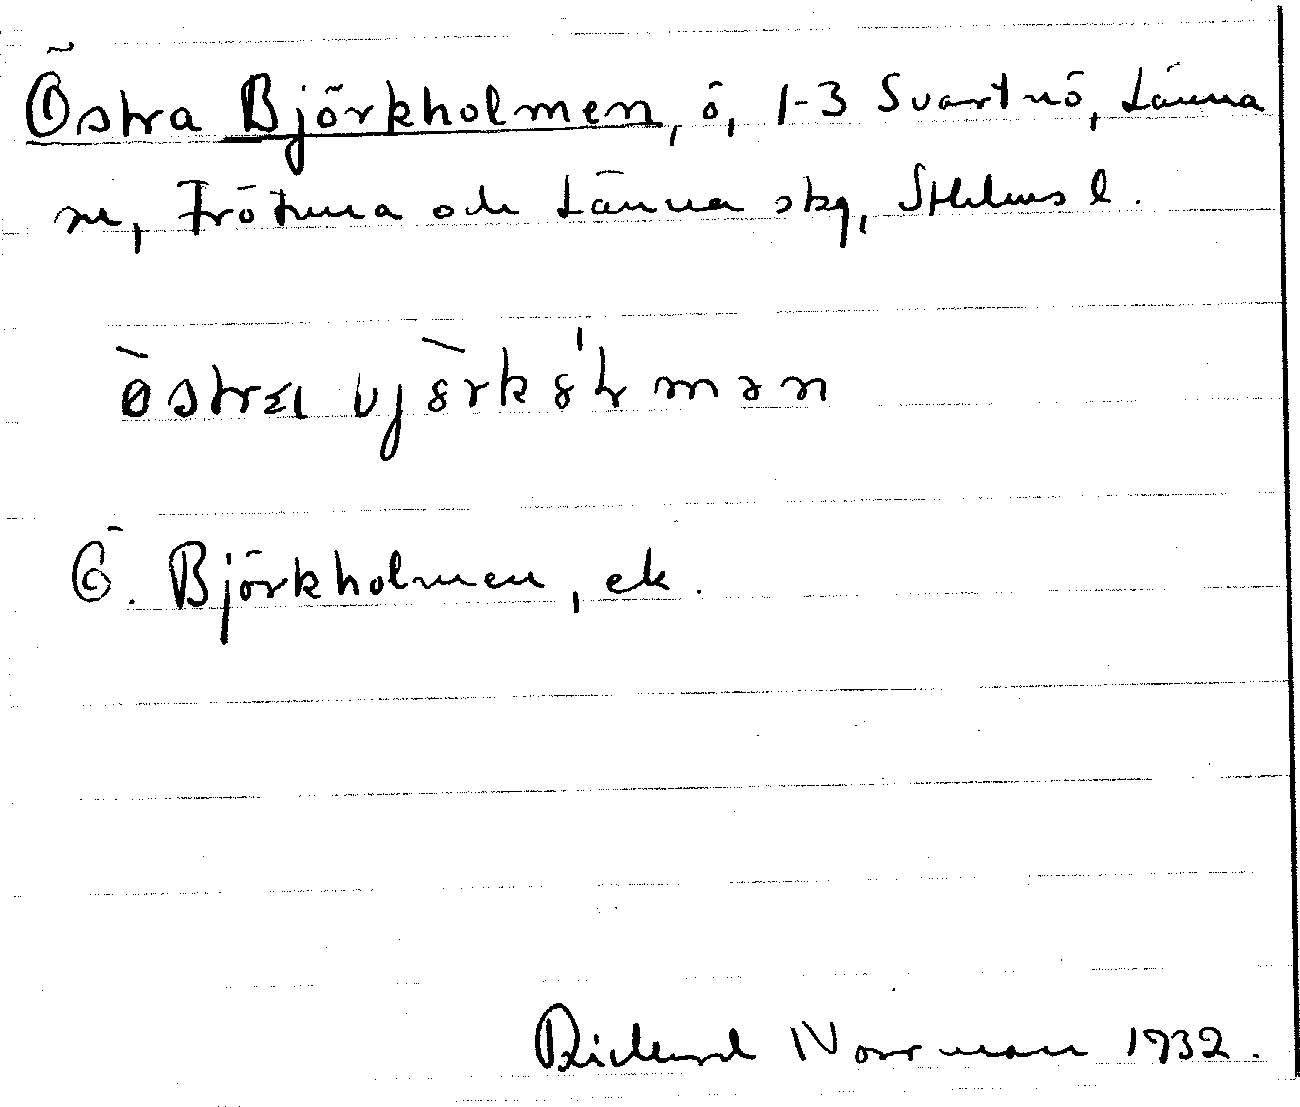 Östra Björkholmen, ö, 1-3 Svartnö, Länna
sn, Frötuna och Länna skg, Sthlms l.
östra bjòrkòlmən
Ö. Björkholmen, ek.
Rickard Norrman 1932.